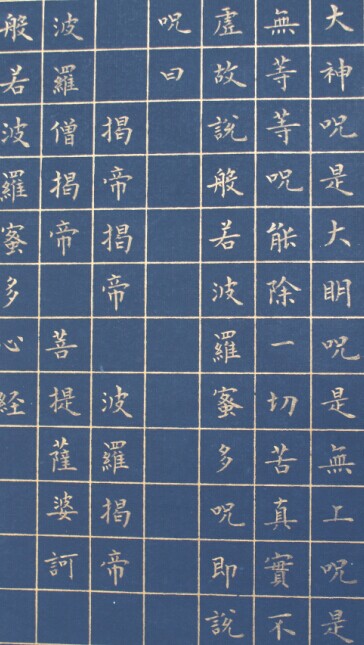 大神呪是大明呪是無上呪是
無等等呪能除一切苦真實不
虛故說般若波羅蜜多呪即說
呪曰
揭帝揭帝 波羅揭帝
波羅僧揭帝 菩提薩婆訶
般若波羅蜜多心経